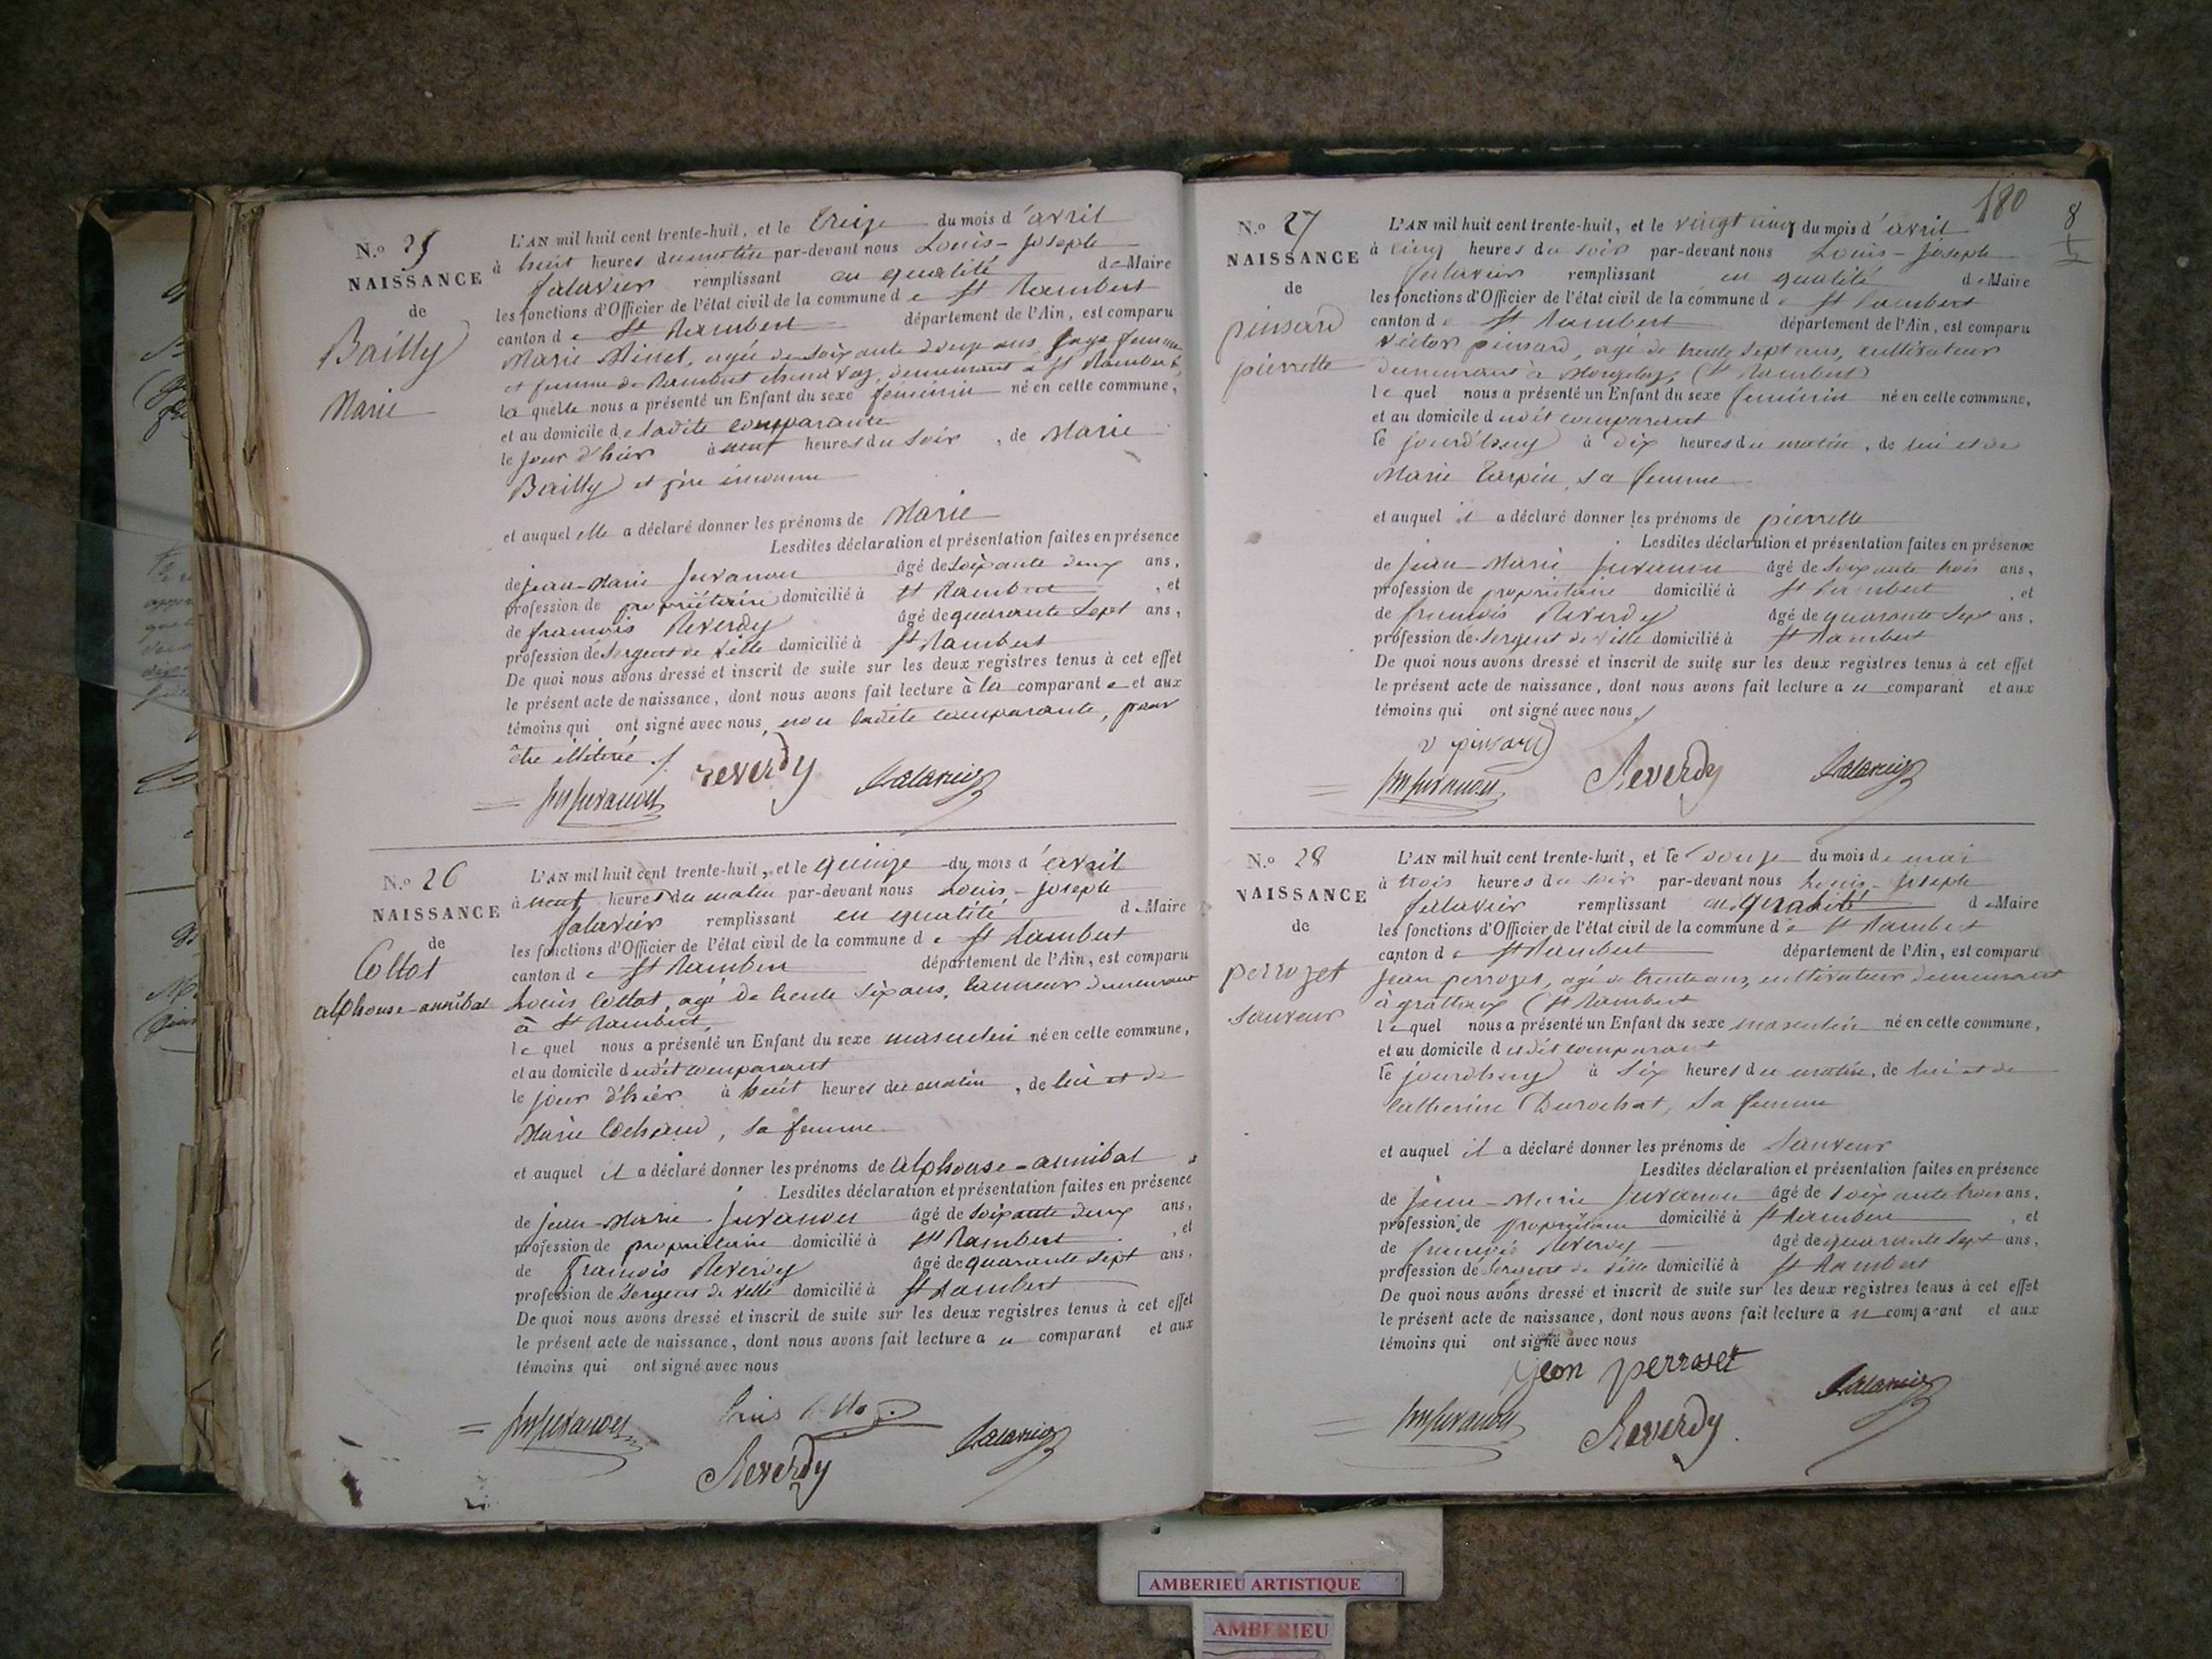 N.o 25
NAISSANCE
de
Bailly
Marie
L'AN mil huit cent trente-huit, et le treize du mois d'avril
à huit heures du matin par-devant nous Louis-Joseph
falavier remplissant en qualité de Maire
les fonctions d'Officier de l'état civil de la commune de St Rambert
canton de St Rambert département de l'Ain, est comparu
Marie Minet, agée de soixante douze ans sage femme
et femme de Rambert demeurant à St Rambert,
la quelle nous a présenté un Enfant du sexe féminin né en cette commune,
et au domicile de ladite comparante
le jour d'hier à neuf heures du soir, de Marie
Bailly et père inconnu
et auquel elle a déclaré donner les prénoms de Marie
Lesdites déclaration et présentation faites en présence
de jean-Marie Juvanon âgé de soixante deux ans,
profession de propriétaire domicilié à St Rambert, et
de françois Reverdy âgé de quarante sept ans,
profession de Sergent de ville domicilié à St Rambert
De quoi nous avons dressé et inscrit de suite sur les deux registres tenus à cet effet
le présent acte de naissance, dont nous avons fait lecture à la comparante et aux
témoins qui ont signé avec nous, non ladite comparante, pour
être illitérée ./.
jm juvanon reverdy falavier
N.o 26
NAISSANCE
de
Collot
alphonse-annibal
L'AN mil huit cent trente-huit, et le quinze du mois d'avril
à neuf heures du matin par-devant nous Louis-joseph
falavier remplissant en qualité de Maire
les fonctions d'Officier de l'état civil de la commune de St Rambert
canton de St Rambert département de l'Ain, est comparu
Louis Collot, agé de trente six ans, tanneur demeurant
à St Rambert,
le quel nous a présenté un Enfant du sexe masculin né en cette commune,
et au domicile dudit comparant
le jour d'hier à huit heures du matin, de lui et de
Marie Cochand, sa femme
et auquel il a déclaré donner les prénoms de alphonse-annibal
Lesdites déclaration et présentation faites en présence
de jean-Marie Juvanon âgé de soixante deux ans,
profession de propriétaire domicilié à St Rambert, et
de françois Reverdy âgé de quarante sept ans,
profession de Sergent de ville domicilié à St Rambert
De quoi nous avons dressé et inscrit de suite sur les deux registres tenus à cet effet
le présent acte de naissance, dont nous avons fait lecture au comparant et aux
témoins qui ont signé avec nous
jm juvanon louis Collot falavier
Reverdy
180
8
N.o 27
NAISSANCE
de
pinsard
pierrette
L'AN mil huit cent trente-huit, et le vingt cinq du mois d'avril
à cinq heures du soir par-devant nous Louis-joseph
falavier remplissant en qualité de Maire
les fonctions d'Officier de l'état civil de la commune de St Rambert
canton de St Rambert département de l'Ain, est comparu
victor pinsard, agé de trente sept ans, cultivateur
demeurant à (St Rambert)
le quel nous a présenté un Enfant du sexe feminin né en cette commune,
et au domicile dudit comparant
le jourd'huy à dix heures du matin, de lui et de
Marie Tarpin, sa femme
et auquel il a déclaré donner les prénoms de pierrette
Lesdites déclaration et présentation faites en présence
de jean-Marie Juvanon âgé de soixante trois ans,
profession de propriétaire domicilié à St Rambert, et
de françois Reverdy âgé de quarante sept ans,
profession de Sergent de ville domicilié à St Rambert
De quoi nous avons dressé et inscrit de suite sur les deux registres tenus à cet effet
le présent acte de naissance, dont nous avons fait lecture au comparant et aux
témoins qui ont signé avec nous
v pinsard
jm juvanon Reverdy falavier
N.o 28
NAISSANCE
de
perrozet
Sauveur
L'AN mil huit cent trente-huit, et le douze du mois de mai
à trois heures du soir par-devant nous Louis-joseph
falavier remplissant en qualité de Maire
les fonctions d'Officier de l'état civil de la commune de St Rambert
canton de St Rambert département de l'Ain, est comparu
jean perrozet, agé de trente ans, cultivateur demeurant
à grattoux (St Rambert
le quel nous a présenté un Enfant du sexe masculin né en cette commune,
et au domicile dudit comparant
le jourd'huy à six heures du matin, de lui et de
Catherine Durochat, sa femme
et auquel il a déclaré donner les prénoms de Sauveur
Lesdites déclaration et présentation faites en présence
de jean-Marie Juvanon âgé de soixante trois ans,
profession de propriétaire domicilié à St Rambert, et
de françois Reverdy âgé de quarante sept ans,
profession de Sergent de ville domicilié à St Rambert
De quoi nous avons dressé et inscrit de suite sur les deux registres tenus à cet effet
le présent acte de naissance, dont nous avons fait lecture au comparant et aux
témoins qui ont signé avec nous
jean perroset
jm juvanon Reverdy falavier
AMBERIEU ARTISTIQUE
AMBERIEU